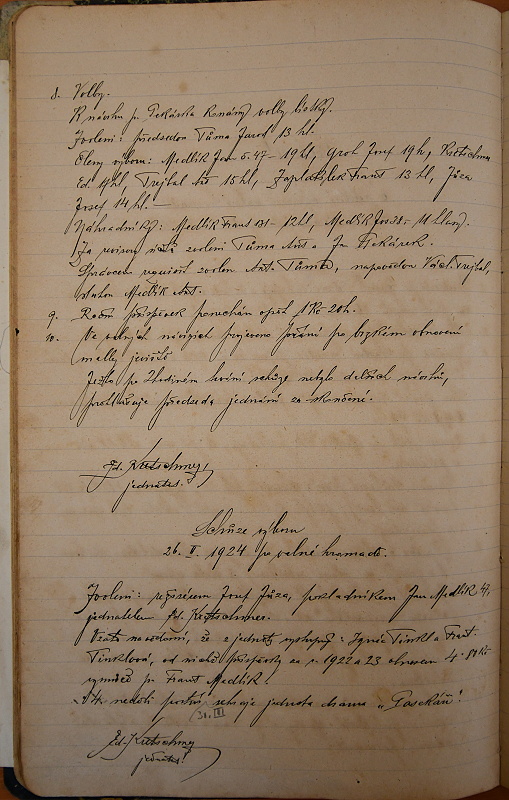 8. Volby.
K návrhu p. Pekárka konány volby lístky.
Zvoleni: předsedou Tůma Jarosl 13 hl.
Členy výboru: Medlík Jan č. 47 - 19 hl, Groh Josef 19 h, Kretschmer
Ed. hl, Trejbal Ant 15 hl, Frant 13 hl, Jůza
Josef 14 hl.
Náhradníky: Medlík Frant 131 - 12 hl, Medlík Jos 38 - 11 hlasy.
Za revisory účtů zvoleni Tůma Ant a Jan Pekárek.
Správcem zvolen Ant. Tůma, napovedou Václ. Trejbal,
Medlík Ant.
9. Roční příspěvek ponechán opět 1 Kč 20 h.
10. Ve volných návrzích projeveno přání po brzkém obnovení
malby jeviště
Ježto po 2hodiném trvání schůze nebylo dalších návrhů,
prohlašuje předseda jednání za skončené.
Ed. Kretschmer
jednatel.
Schůze výboru
26. II. 1924 po valné hromadě.
Zvoleni: režisérem Josef Jůza, pokladníkem Jan Medlík 47,
jednatelem Ed. Kretschmer.
Vzato na vědomí, že z jednoty vystupují: Ignác Tinkl a Frant.
Tinklová, od nichž příspěvky za r. 1922 a 23 obnosem 4·80 Kč
p. Frant Medlík.
V 4. neděli postní sehraje jednota drama „Pasekáři".
(30. III)
Ed. Kretschmer
jednatel